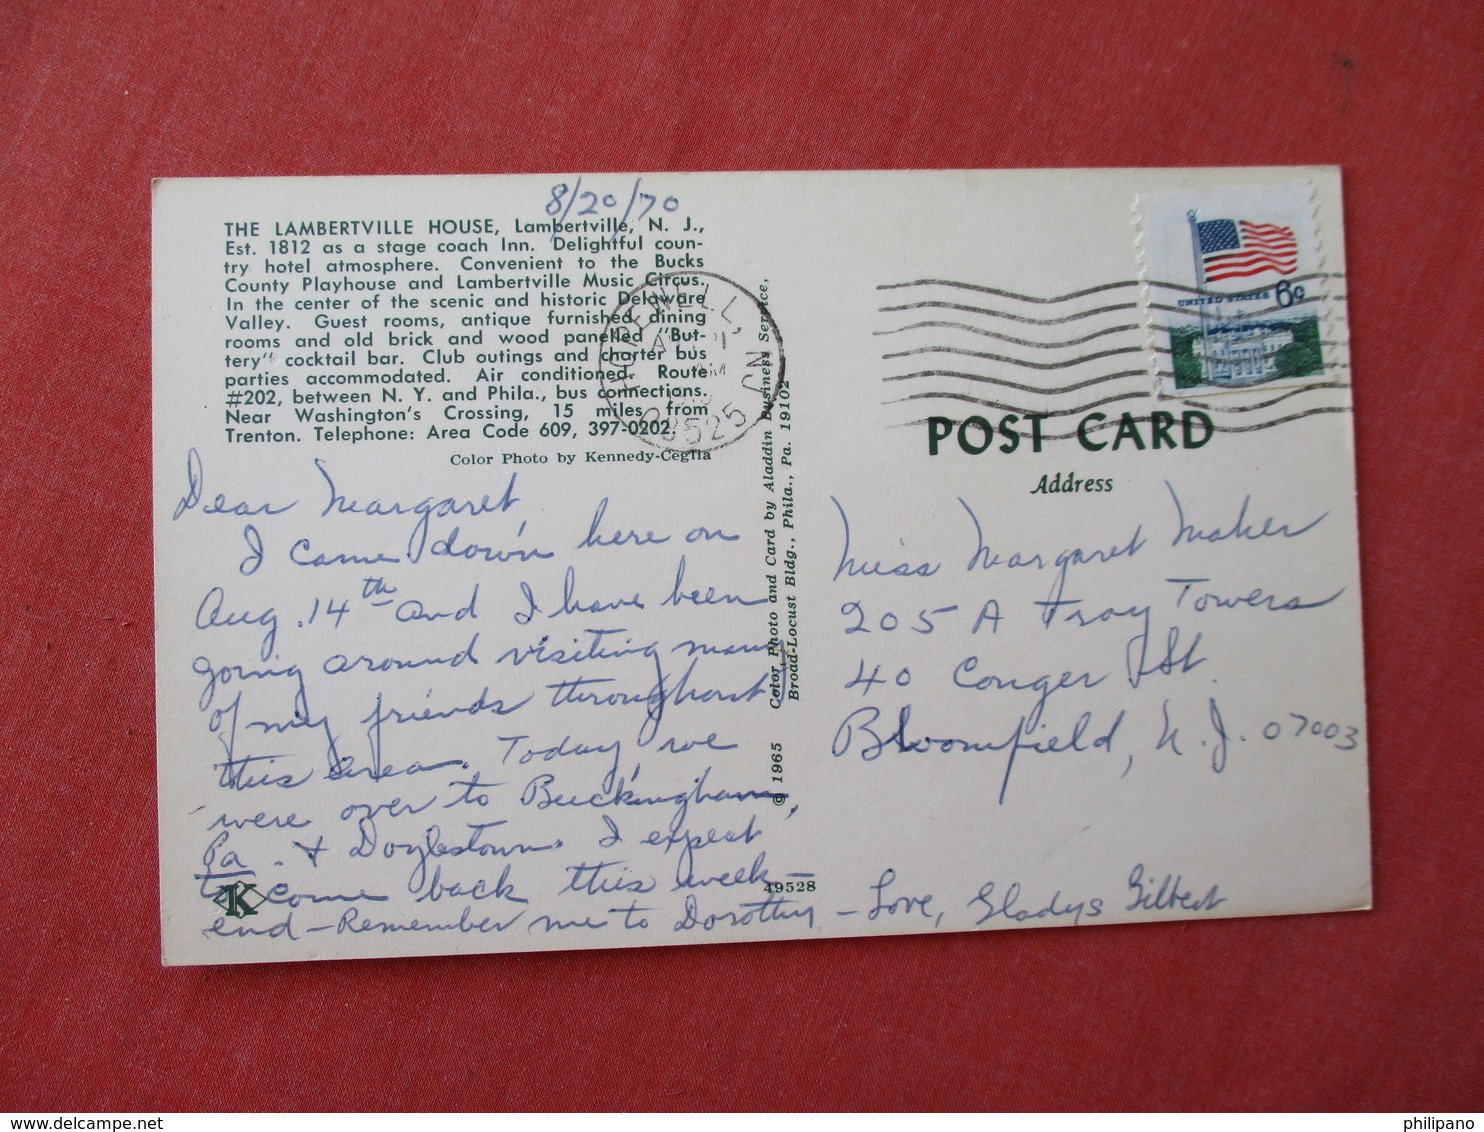 8/20/70
THE LAMBERTVILLE HOUSE, Lambertville, N. J.,
Est. 1812 as a stage coach Inn. Delightful coun-
try hotel atmosphere. Convenient to the Bucks
County Playhouse and Lambertville Music Circus.
In the center of the scenic and historic Delaware
Valley. Guest rooms, antique furnished dining
rooms and old brick and wood panelled "But-
tery" cocktail bar. Club outings and charter bus
parties accommodated. Air conditioned. Route
#202, between N. Y. and Phila., bus connections.
Near Washington's Crossing, 15 miles from
Trenton. Telephone: Area Code 609, 397-0202.
Color Photo by Kennedy-Ceglia
Dear Margaret,
I came down here on
Aug. 14th and I have been
going around visiting many
of my friends throughout
this area. Today, we
were over to Buckingham,
Pa. & Doylestown. I expect
to come back this week-
end – Remember me to Dorothy – Love, Gladys Gilbert
K
49528
© 1965 Color Photo and Card by Aladdin Business Service,
Broad-Locust Bldg., Phila., Pa. 19102
HOPEWELL, NJ
21
AM
08525
UNITED STATES 6c
POST CARD
Address
Miss Margaret Maher
205 A Troy Towers
40 Conger St.
Bloomfield, N. J. 07003
philipano